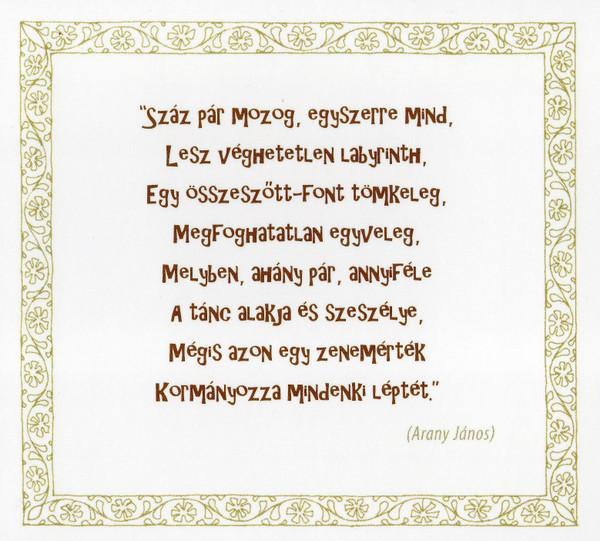 "Száz pár mozog, egyszerre mind,
Lesz véghetetlen labyrinth,
Egy összeszőtt-font tömkeleg,
Megfoghatatlan egyveleg,
Melyben, ahány pár, annyiféle
A tánc alakja és szeszélye,
Mégis azon egy zenemérték
Kormányozza mindenki léptét."
(Arany János)